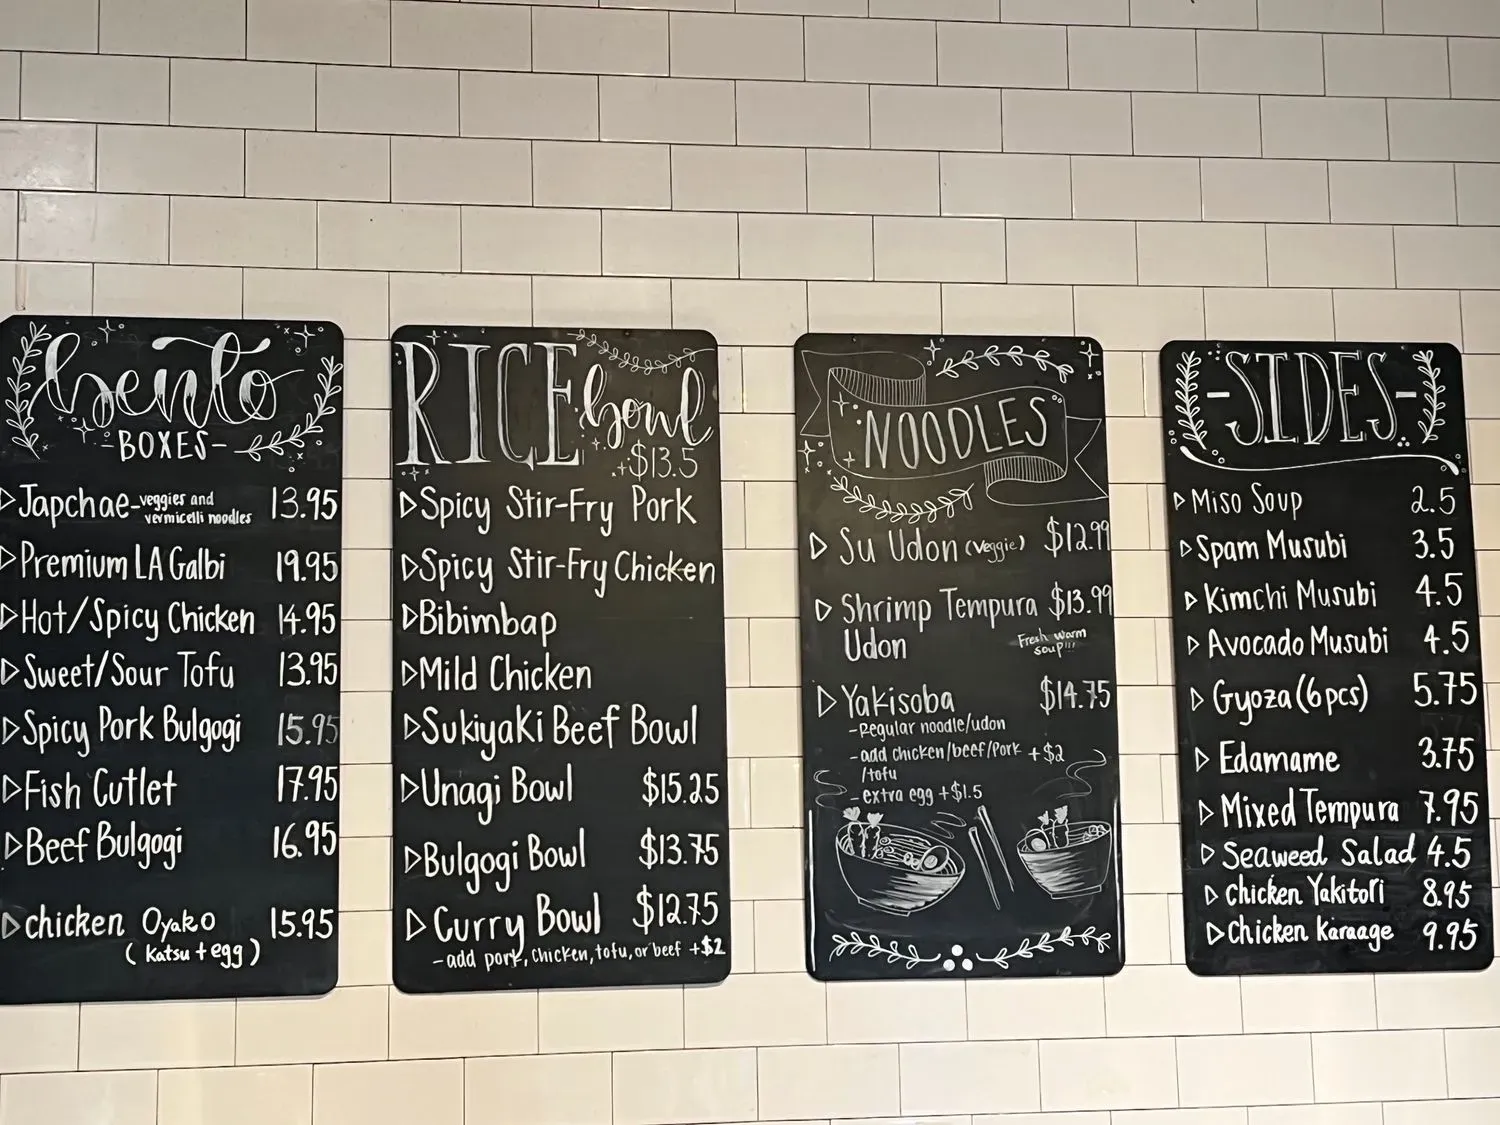 bento
-BOXES-
Japchae-veggies and vermicelli noodles 13.95
Premium LA Galbi 19.95
Hot/Spicy Chicken 14.95
Sweet/Sour Tofu 13.95
Spicy Pork Bulgogi 15.95
Fish Cutlet 17.95
Beef Bulgogi 16.95
chicken Oyako 15.95
(katsu + egg)
RICE bowl
$13.5
Spicy Stir-Fry Pork
Spicy Stir-Fry Chicken
Bibimbap
Mild Chicken
Sukiyaki Beef Bowl
Unagi Bowl $15.25
Bulgogi Bowl $13.75
Curry Bowl $12.75
-add pork, chicken, tofu, or beef +$2
NOODLES
Su Udon (veggie) $12.99
Shrimp Tempura $13.99
Udon
Fresh warm
soup!!!
Yakisoba $14.75
-Regular noodle/udon
-add chicken/beef/Pork +$2
/tofu
-extra egg +$1.5
-SIDES-
Miso Soup 2.5
Spam Musubi 3.5
Kimchi Musubi 4.5
Avocado Musubi 4.5
Gyoza (6pcs) 5.75
Edamame 3.75
Mixed Tempura 7.95
Seaweed Salad 4.5
chicken Yakitori 8.95
chicken karaage 9.95